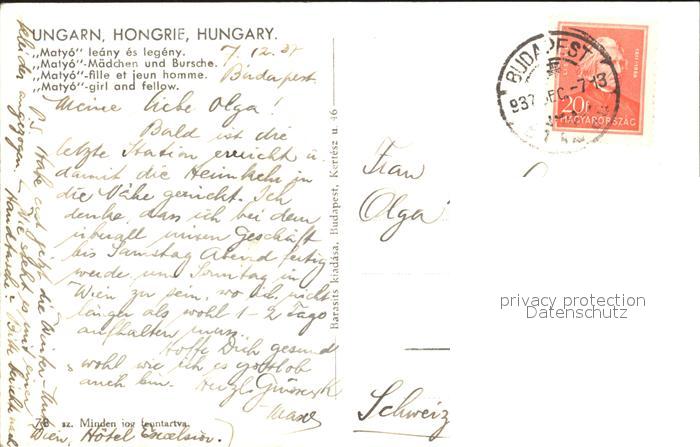 UNGARN, HONGRIE, HUNGARY.
„Matyó” leány és legény.
„Matyó”-Mädchen und Bursche.
„Matyó”-fille et jeun homme.
„Matyó”-girl and fellow.
7.12.37
Budapest
Meine liebe Olga!
Bald ist die
letzte Station erreicht u.
damit die Heimkehr in
die Nähe gerückt. Ich
denke, dass ich bei dem
überall miesen Geschäft
bis Samstag Abend fertig
werde um Sonntag in
Wien zu sein, wo ich nicht
länger als wohl 1-2 Tage
aufhalten muss.
Hoffe Dich gesund
wohl wie ich es gottlob
auch bin. Herzl.
Max
P.S. Habe erst jetzt die Winter-
kleider angezogen. Wie steht es mit einer
Handtasche? Bitte
Wien, Hôtel Excelsior.
sz. Minden jog fenntartva.
Barasits kiadása, Budapest, Kertész u. 46
BUDAPEST
937 DEC. -7. 13
20f
MAGYARORSZÁG
Frau
Olga
Schweiz
privacy protection
Datenschutz